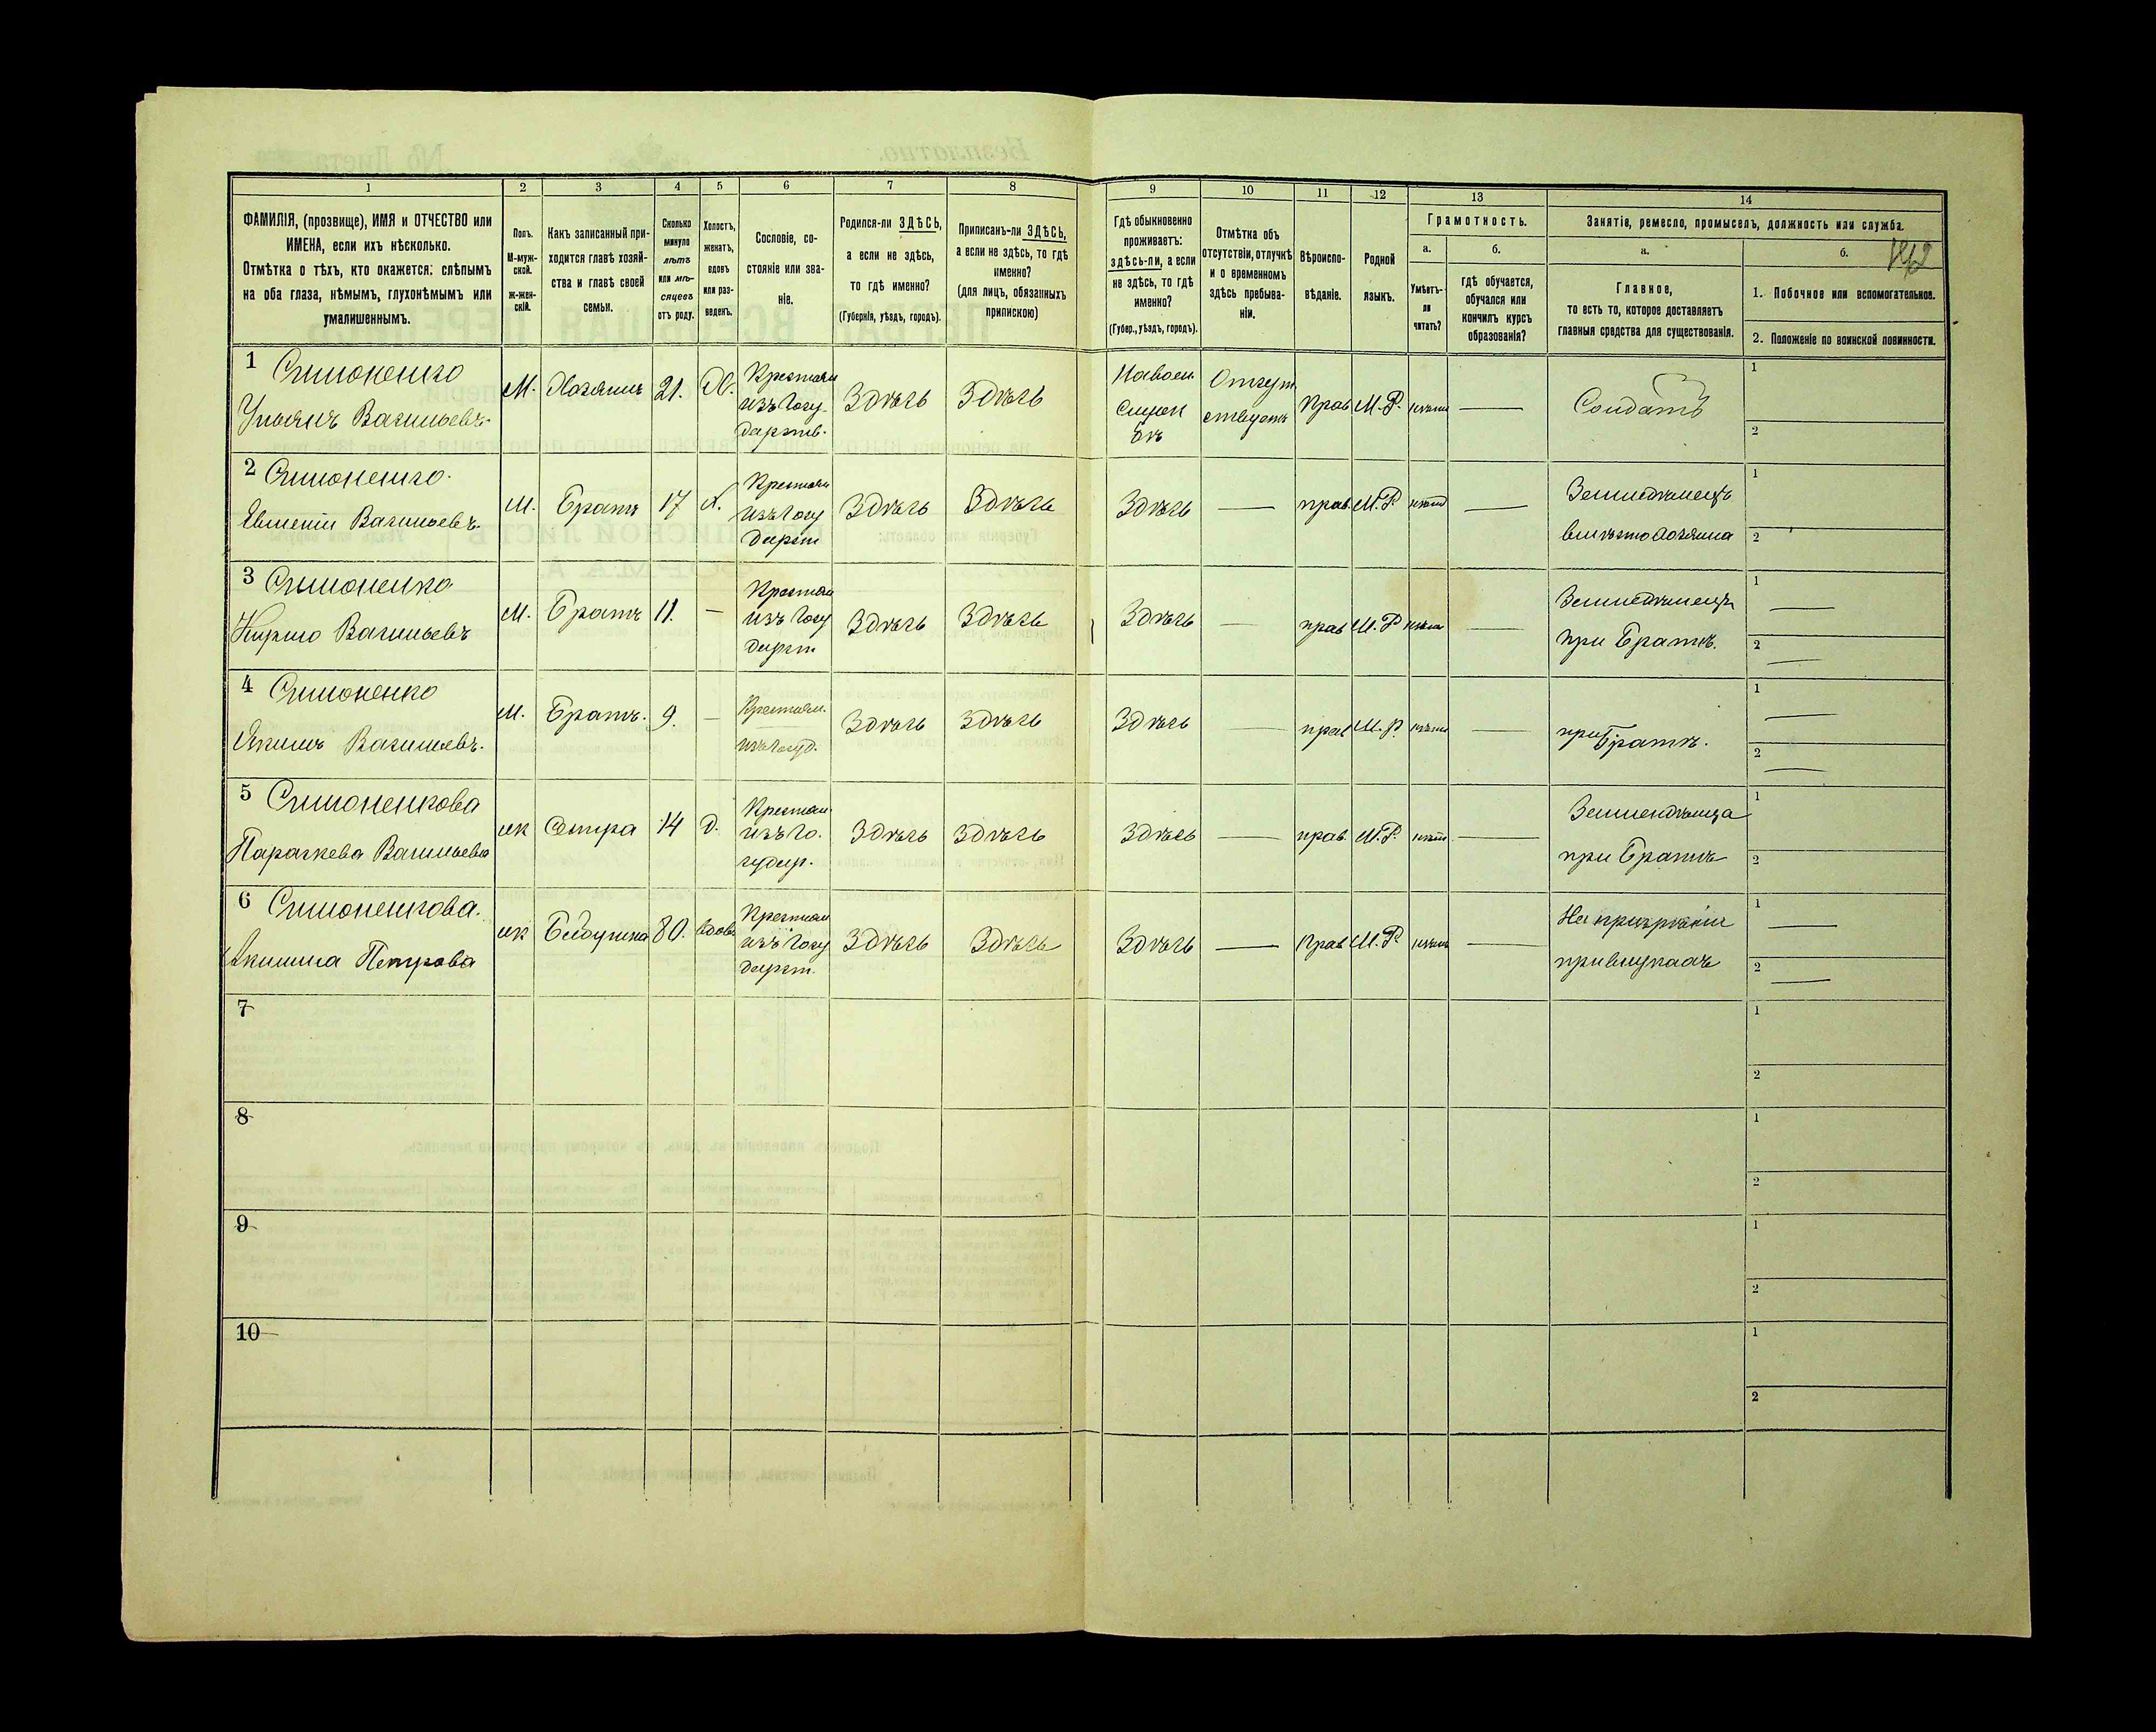 1 2 3 4 5 6 7 8 9 10 11 12 13 14
ФАМИЛІЯ, (прозвище), ИМЯ и ОТЧЕСТВО или
ИМЕНА, если ихъ нѣсколько.
Отмѣтка о тѣхъ, кто окажется: слѣпымъ
на оба глаза, нѣмымъ, глухонѣмымъ или
умалишеннымъ.
Полъ.
М-муж-
ской.
ж-жен-
скій.
Какъ записанный при-
ходится главѣ хозяй-
ства и главѣ своей
семьи.
Сколько
минуло
лѣтъ
или мѣ-
сяцевъ
отъ роду.
Холостъ,
женатъ,
вдовъ
или раз-
веденъ.
Сословіе, со-
стояніе или зва-
ніе.
Родился-ли ЗДѢСЬ,
а если не здѣсь,
то гдѣ именно?
(Губернія, уѣздъ, городъ).
Приписанъ-ли ЗДѢСЬ,
а если не здѣсь, то гдѣ
именно?
(для лицъ, обязанныхъ
припискою)
Гдѣ обыкновенно
проживаетъ:
здѣсь-ли, а если
не здѣсь, то гдѣ
именно?
(Губер., уѣздъ, городъ).
Отмѣтка объ
отсутствіи, отлучкѣ
и о временномъ
здѣсь пребыва-
ніи.
Вѣроиспо-
вѣданіе.
Родной
языкъ.
Грамотность.
а.
Умѣетъ-
ли
читать?
б.
гдѣ обучается,
обучался или
кончилъ курсъ
образованія?
Занятіе, ремесло, промыселъ, должность или служба.
а.
Главное,
то есть то, которое доставляетъ
главныя средства для существованія.
б.
1. Побочное или вспомогательное.
2. Положеніе по воинской повинности.
1 Симоненко
Ульянъ Васильевъ.
М.
Хозяинъ
21.
Х.
Крестьян
изъ Госу-
дарств.
Здѣсь
Здѣсь
Отсут
ствуетъ
Прав
М.Р.
нѣт
Солдатъ
1
2
2 Симоненко.
Евменій Васильевъ.
М.
Братъ
17
х.
Крестьян
изъ Госу
дарст
Здѣсь
Здѣсь
Здѣсь
прав.
М.Р.
нѣт
Земледѣлецъ
вмѣсто хозяина
1
2
3 Симоненко
Кирило Васильевъ
М.
Братъ
11.
Крестьян
изъ Госу
дарст
Здѣсь
Здѣсь
Здѣсь
прав
М.Р
нѣт
Земледѣлецъ
при Братѣ.
1
2
4 Симоненко
Якимъ Васильевъ.
М.
Братъ.
9.
Крестьян.
изъ госуд.
Здѣсь
Здѣсь
Здѣсь
прав
М.Р.
нѣт
при Братѣ.
1
2
5 Симоненкова
Параскева Васильева
ж
Сестра
14
д.
Крестьян
изъ Го.
судар.
Здѣсь
Здѣсь
Здѣсь
прав.
М.Р.
нѣт.
Земледѣлица
при Братѣ
1
2
6 Симоненкова.
Акилина Петрова
ж
80.
вдова
Крестьян
изъ Госу
дарст.
Здѣсь
Здѣсь
Здѣсь
Прав
М.Р.
нѣт
На призрѣніи
при внукахъ
1
2
7
1
2
8
1
2
9
1
2
10
1
2